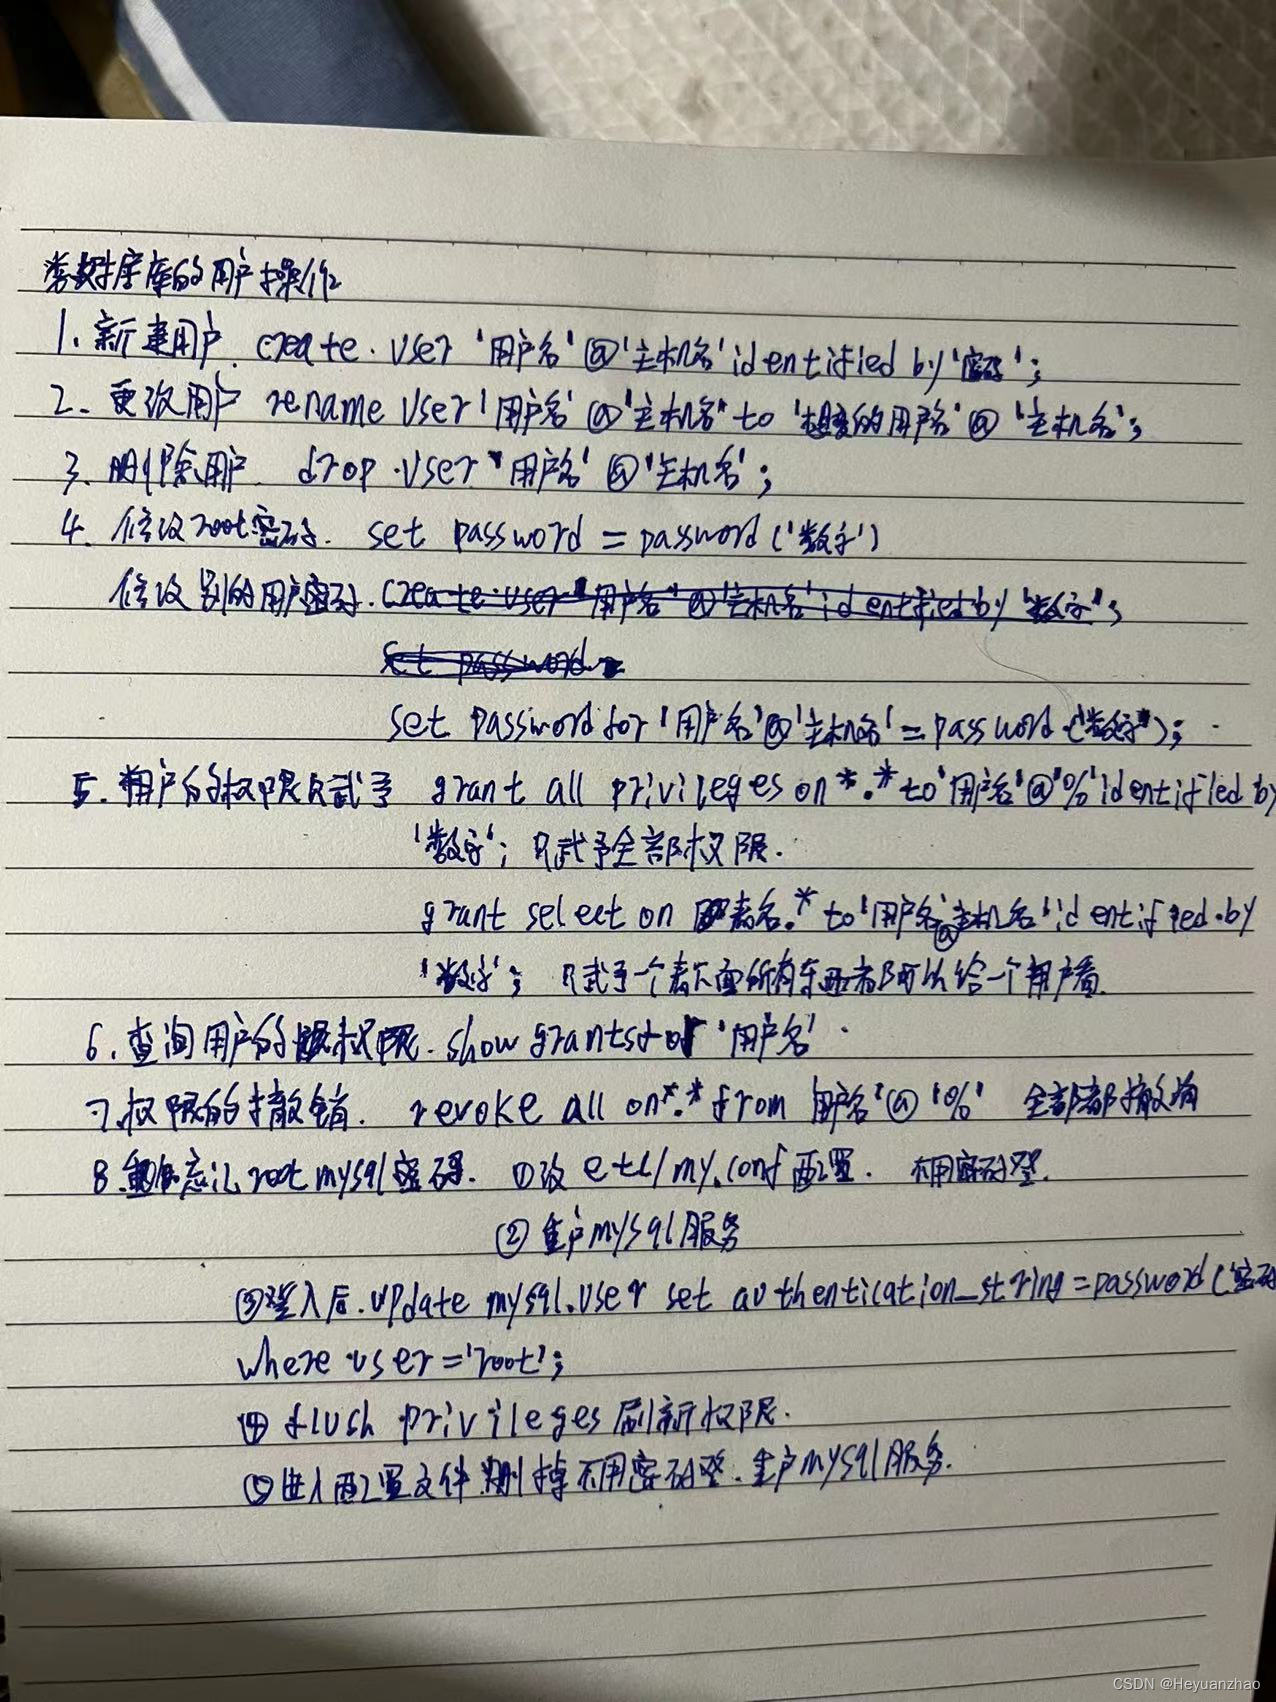 数据库的用户操作
1. 新建用户. create user '用户名'@'主机名' identified by '密码';
2. 更改用户 rename user '用户名'@'主机名' to '想要的用户名'@'主机名';
3. 删除用户 drop user '用户名'@'主机名';
4. 修改root密码. set password = password ('数字')
修改别的用户密码. create user '用户名'@'主机名' identified by '数字';
set password =
set password for '用户名'@'主机名' = password ('数字');
5. 用户的权限赋予 grant all privileges on *.* to '用户名'@'%' identified by
'数字'; 赋予全部权限.
grant select on 表名.* to '用户名'@'主机名' identified by
'数字'; 赋予一个表下面所有东西都可以给一个用户看.
6. 查询用户的权限. show grants for '用户名'
7. 权限的撤销. revoke all on *.* from '用户名'@'%' 全部都撤销
8. 忘记root mysql密码. ①改 etc/my.conf配置. 不用密码登.
② 重启mysql服务
③登入后. update mysql.user set authentication_string=password('密码
where user='root';
④ flush privileges 刷新权限.
⑤进入配置文件 删掉不用密码登. 重启mysql服务.
CSDN @Heyuanzhao